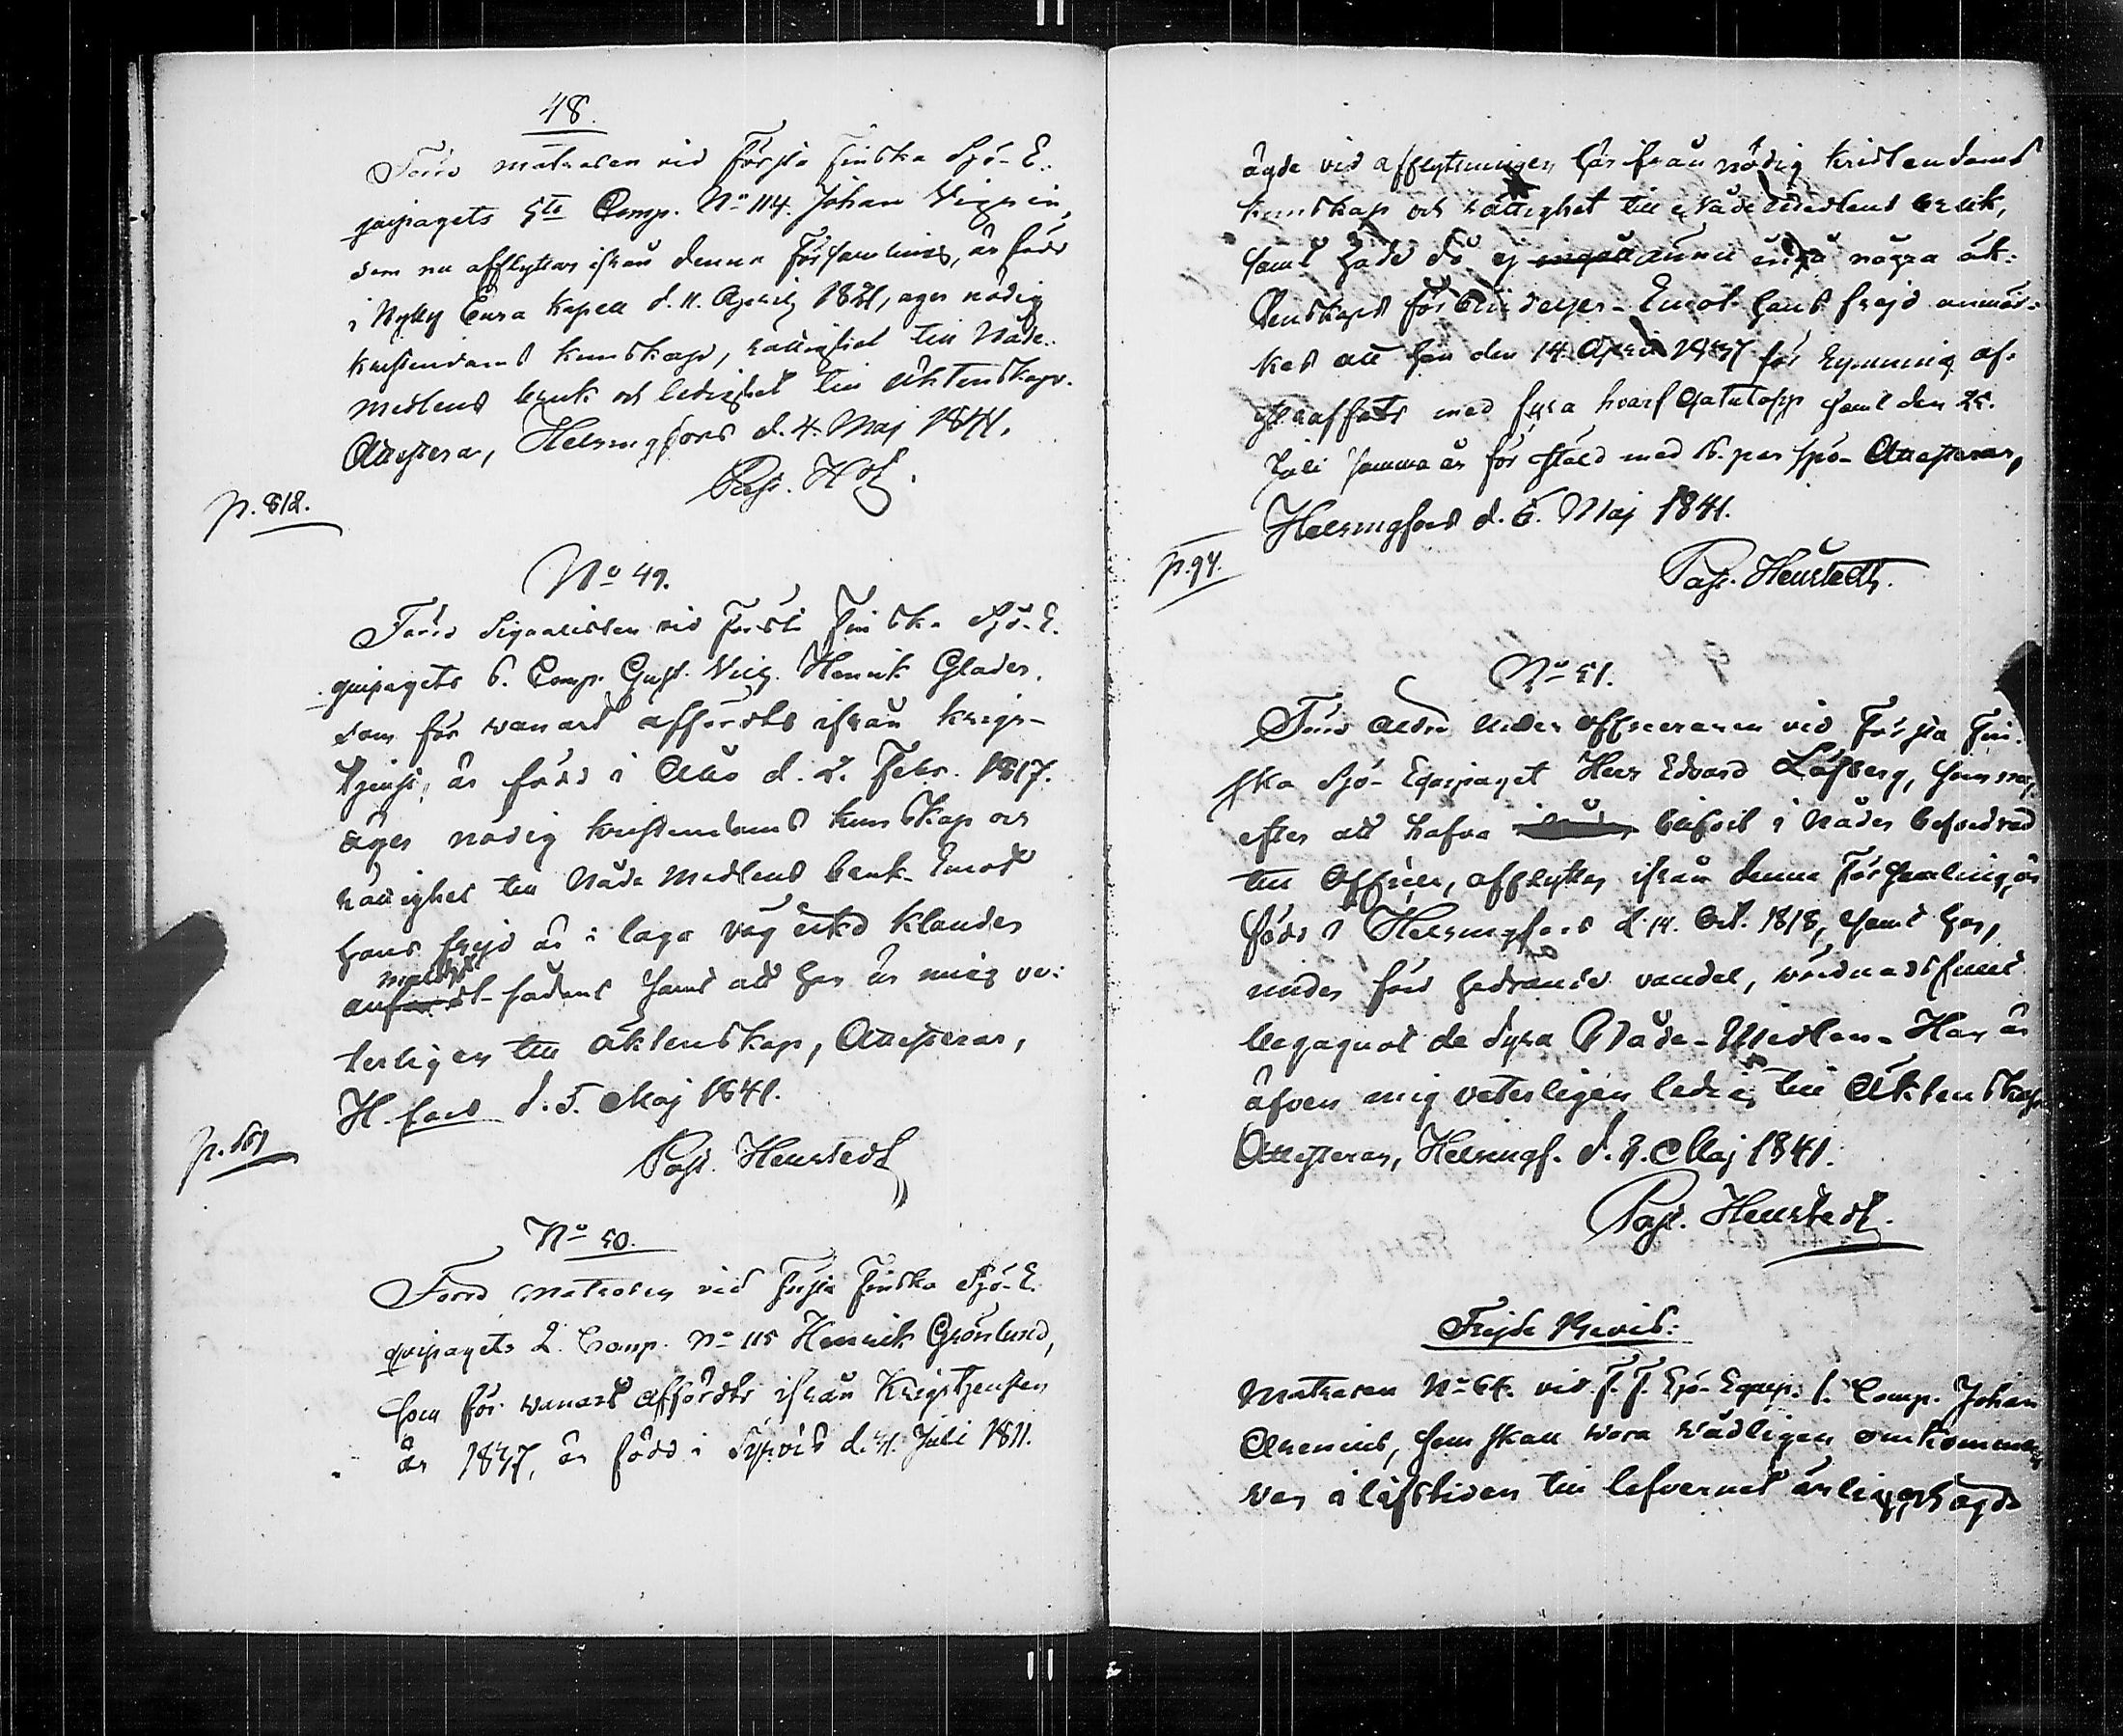 48.
Förra matrosen vid Första Finska Sjö-E.
quipagets 5te Comp. No 114. Johan
som nu afflyttar ifrån denna Församling, är född
i Nykyrka Kapell d. 11. April 1821, äger nödig
kristendoms kunskap, rättighet till Nåde-
medlens bruk och ledighet till äktenskap.
Attestera, Helsingfors d. 4. Maj 1841.
Past. Hst.
p. 812.
No 49.
Förra Signalisten vid Första Finska Sjö-E.
quipagets 6. Comp. Gust. Wilh. Henrik Glader,
som för vanart afförts ifrån krigs-
tjenst, är född i Åbo d. 2. Febr. 1817.
äger nödig kristendoms kunskap och
rättighet till Nåde Medlens bruk. Emot
hans frejd är i laga väg intet klander
samt att han är mig ve-
terligen till äktenskap, Attesteras,
H.fors d. 5. Maj 1841.
Past. Heurstedt
No 50.
Förra matrosen vid Första Finska Sjö-E.
quipagets 2. Comp. No 115 Henrik Grönlund,
som för vanart afförts ifrån Krigstjensten
år 1837, är född i d. 31. Juli 1811.
ägde vid afflyttningen härifrån nödig kristendoms
kunskap och rättighet till Nådemedlens bruk,
samt hade då ej ännu ingå några äk-
tenskaps förbindelser. Emot hans frejd anmär-
kes att han den 14. April 1837 för rymning af-
straffats med fyra hvarf Gatulopp samt den 25.
Juli samma år för stöld med 15. par spö. Attesteras,
Helsingfors d. 6. Maj 1841.
p. 94.
Past. Heurstedt.
No 51.
Förra äldre Under officeraren vid Första Fin-
ska Sjö-Equipaget Herr Edvard Löfberg, som nu,
efter att hafva blifvit i Nåder befordrad
till Officer, afflyttar ifrån denna Församling, är
född i Helsingfors d. 14. Oct. 1818, samt har,
under förd hedrande vandel, vördnadsfullt
begagnat de dyra Nåde-Medlen. Han är
äfven mig veterligen ledig till Äktenskap
Attesteras, Helsingf. d. 9. Maj 1841.
Past. Heurstedt.
Frejde Bevis:
Matrosen No 64. vid F. F. Sjö-Equip. 1. Comp. Johan
Arenius, som skall vara vådligen omkommen
var i lifstiden till lefvernet ärlig, och ägde